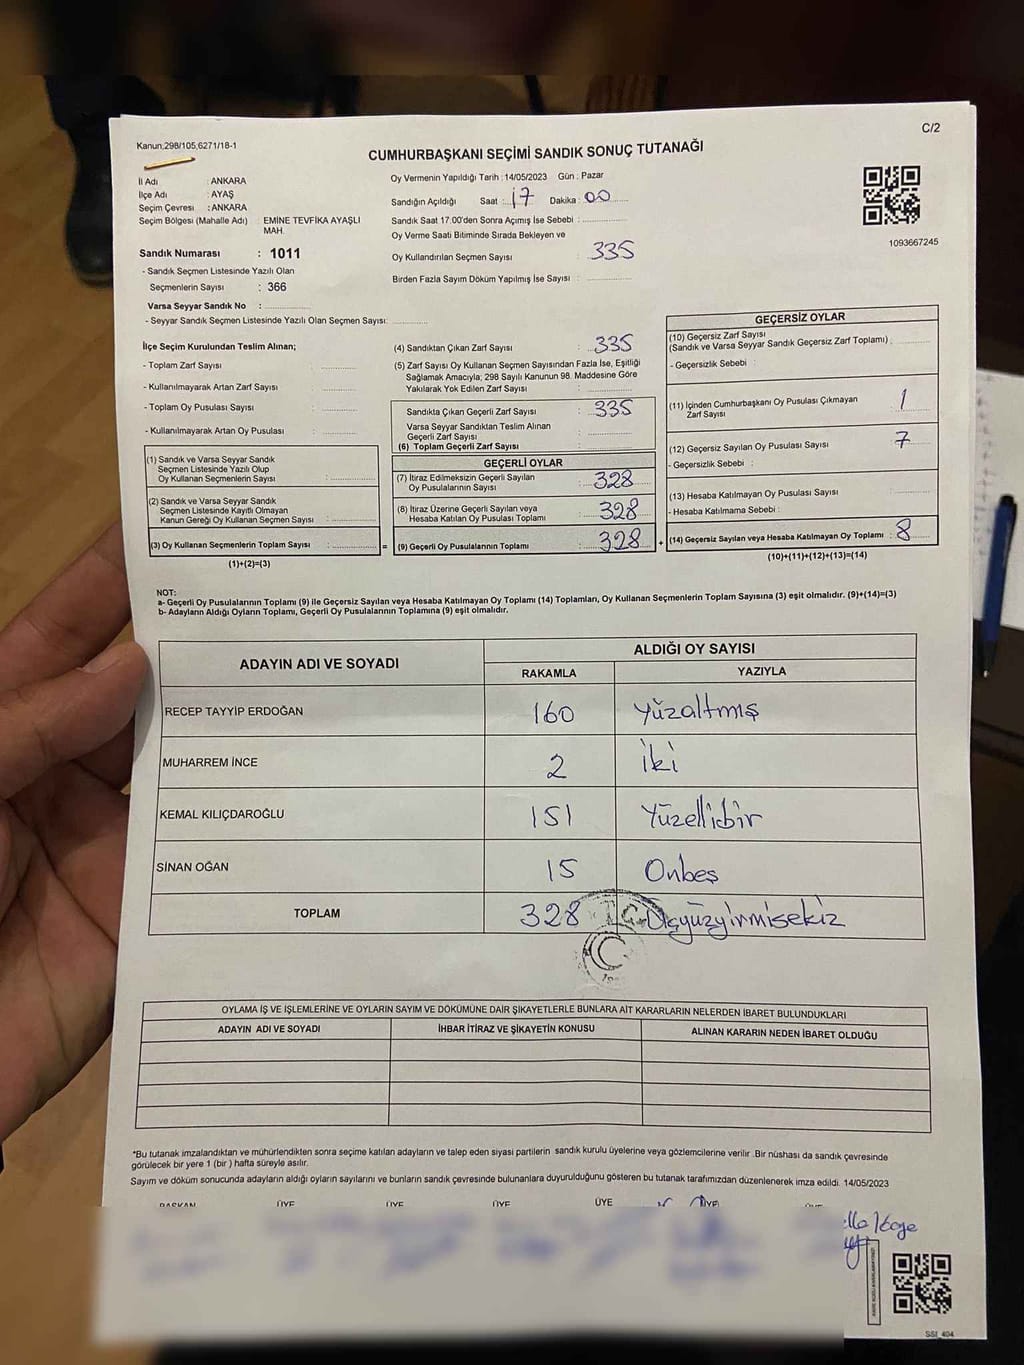 C/2
Kanun,298/105,6271/18-1
CUMHURBAŞKANI SEÇİMİ SANDIK SONUÇ TUTANAĞI
İl Adı : ANKARA
İlçe Adı : AYAŞ
Seçim Çevresi : ANKARA
Seçim Bölgesi (Mahalle Adı) : EMİNE TEVFİKA AYAŞLI
MAH.
Sandık Numarası : 1011
- Sandık Seçmen Listesinde Yazılı Olan
Seçmenlerin Sayısı : 366
Varsa Seyyar Sandık No :
- Seyyar Sandık Seçmen Listesinde Yazılı Olan Seçmen Sayısı:
Oy Vermenin Yapıldığı Tarih : 14/05/2023 Gün : Pazar
Sandığın Açıldığı Saat : 17 Dakika : 00
Sandık Saat 17:00'den Sonra Açımış İse Sebebi :
Oy Verme Saati Bitiminde Sırada Bekleyen ve
Oy Kullandırılan Seçmen Sayısı : 335
Birden Fazla Sayım Döküm Yapılmış İse Sayısı :
1093667245
İlçe Seçim Kurulundan Teslim Alınan;
- Toplam Zarf Sayısı :
- Kullanılmayarak Artan Zarf Sayısı :
- Toplam Oy Pusulası Sayısı :
- Kullanılmayarak Artan Oy Pusulası :
(1) Sandık ve Varsa Seyyar Sandık
Seçmen Listesinde Yazılı Olup
Oy Kullanan Seçmenlerin Sayısı :
(2) Sandık ve Varsa Seyyar Sandık
Seçmen Listesinde Kayıtlı Olmayan
Kanun Gereği Oy Kullanan Seçmen Sayısı :
(3) Oy Kullanan Seçmenlerin Toplam Sayısı : =
(1)+(2)=(3)
(4) Sandıktan Çıkan Zarf Sayısı : 335
(5) Zarf Sayısı Oy Kullanan Seçmen Sayısından Fazla İse, Eşitliği
Sağlamak Amacıyla; 298 Sayılı Kanunun 98. Maddesine Göre
Yakılarak Yok Edilen Zarf Sayısı :
Sandıkta Çıkan Geçerli Zarf Sayısı : 335
Varsa Seyyar Sandıktan Teslim Alınan
Geçerli Zarf Sayısı :
(6) Toplam Geçerli Zarf Sayısı :
GEÇERLİ OYLAR
(7) İtiraz Edilmeksizin Geçerli Sayılan
Oy Pusulalarının Sayısı : 328
(8) İtiraz Üzerine Geçerli Sayılan veya
Hesaba Katılan Oy Pusulası Toplamı : 328
(9) Geçerli Oy Pusulalarının Toplamı : 328 +
GEÇERSİZ OYLAR
(10) Geçersiz Zarf Sayısı
(Sandık ve Varsa Seyyar Sandık Geçersiz Zarf Toplamı) :
- Geçersizlik Sebebi :
(11) İçinden Cumhurbaşkanı Oy Pusulası Çıkmayan
Zarf Sayısı : 1
(12) Geçersiz Sayılan Oy Pusulası Sayısı : 7
- Geçersizlik Sebebi :
(13) Hesaba Katılmayan Oy Pusulası Sayısı :
- Hesaba Katılmama Sebebi :
(14) Geçersiz Sayılan veya Hesaba Katılmayan Oy Toplamı : 8
(10)+(11)+(12)+(13)=(14)
NOT:
a- Geçerli Oy Pusulalarının Toplamı (9) ile Geçersiz Sayılan veya Hesaba Katılmayan Oy Toplamı (14) Toplamları, Oy Kullanan Seçmenlerin Toplam Sayısına (3) eşit olmalıdır. (9)+(14)=(3)
b- Adayların Aldığı Oyların Toplamı, Geçerli Oy Pusulalarının Toplamına (9) eşit olmalıdır.
ADAYIN ADI VE SOYADI ALDIĞI OY SAYISI
RAKAMLA YAZIYLA
RECEP TAYYİP ERDOĞAN 160 Yüzaltmış
MUHARREM İNCE 2 İki
KEMAL KILIÇDAROĞLU 151 Yüzellibir
SİNAN OĞAN 15 Onbeş
TOPLAM 328 Üçyüzyirmisekiz
T.C.
OYLAMA İŞ VE İŞLEMLERİNE VE OYLARIN SAYIM VE DÖKÜMÜNE DAİR ŞİKAYETLERLE BUNLARA AİT KARARLARIN NELERDEN İBARET BULUNDUKLARI
ADAYIN ADI VE SOYADI İHBAR İTİRAZ VE ŞİKAYETİN KONUSU ALINAN KARARIN NEDEN İBARET OLDUĞU
*Bu tutanak imzalandıktan ve mühürlendikten sonra seçime katılan adayların ve talep eden siyasi partilerin sandık kurulu üyelerine veya gözlemcilerine verilir .Bir nüshası da sandık çevresinde
görülecek bir yere 1 (bir ) hafta süreyle asılır.
Sayım ve döküm sonucunda adayların aldığı oyların sayılarını ve bunların sandık çevresinde bulunanlara duyurulduğunu gösteren bu tutanak tarafımızdan düzenlenerek imza edildi. 14/05/2023
BAŞKAN ÜYE ÜYE ÜYE ÜYE ÜYE
SSI_404